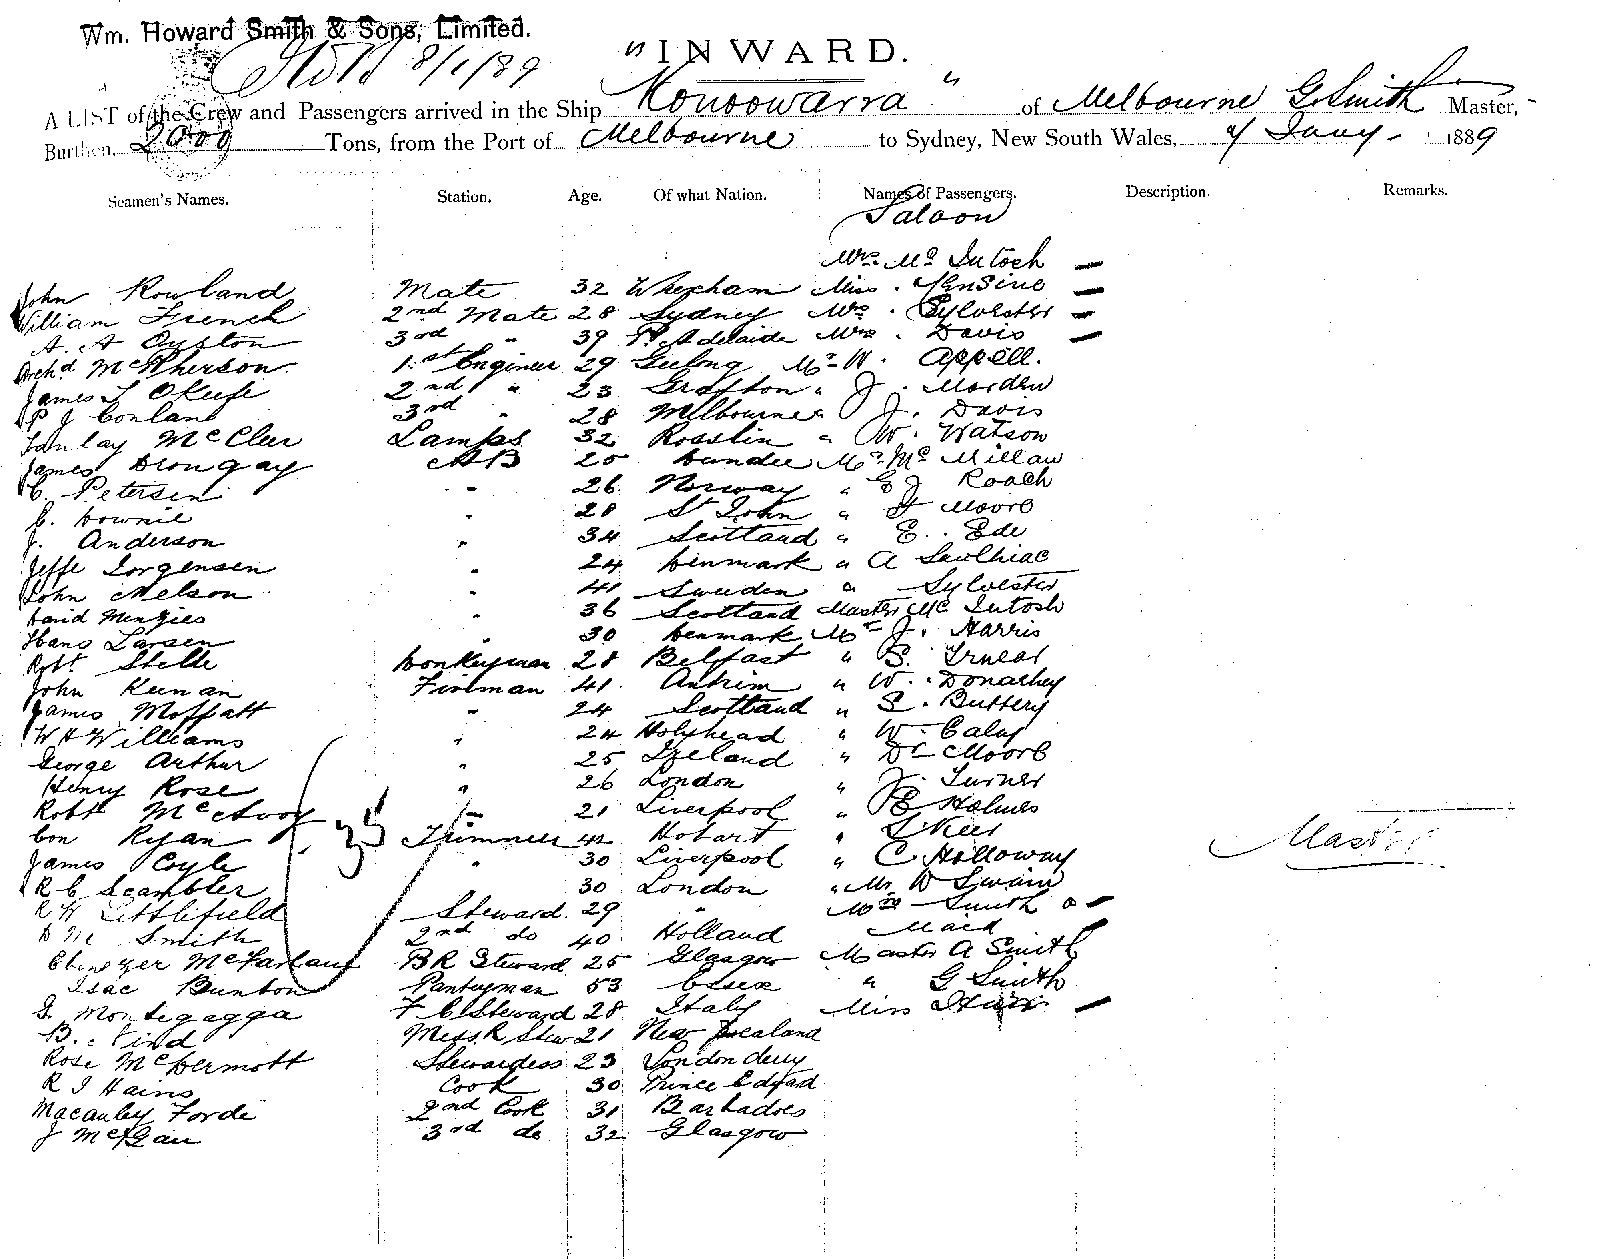 Wm. Howard Smith & Sons, Limited.
8/1/89
"INWARD.
A LIST of the Crew and Passengers arrived in the Ship "Konoowarra" of Melbourne G Smith Master,
Burthen, 2000 Tons, from the Port of Melbourne to Sydney, New South Wales, Jany 1889
Seamen's Names. Station. Age. Of what Nation. Names of Passengers. Description. Remarks.
Saloon
Mrs. Mc Intosh
John Rowland Mate 32 Wrexham Miss
William French 2nd Mate 28 Sydney Mrs. Sylvester
A. A 3rd " 39 Pt Adelaide Mrs. Davis
Archd McPherson 1st Engineer 29 Geelong Mr W. Appell.
James L OKeefe 2nd " 23 Grafton " J. Morden
P J Conland 3rd " 28 Melbourne " J. Davis
Finlay McCleer Lamps 32 Rosslin " W. Watson
James AB 25 Dundee Mr. Mc Millan
C. Petersen " 26 Norway " E J Roach
C. Downie " 28 St John " Moore
J. Anderson " 34 Scotland " E. Ede
Jeffe Jorgensen " 24 Denmark " A
John Nelson " 41 Sweden " Sylvester
David Menzies " 36 Scotland Master Mc Intosh
Hans Larsen " 30 Denmark Mr J. Harris
Robt. Stelle Donkeyman 28 Belfast " S.
John Keenan Fireman 41 Antrim " W. Donarhey
James Moffatt " 24 Scotland " S. Buttery
W H Williams " 24 Holyhead " W.
George Arthur " 25 Ireland " Dr Moore
Henry Rose " 26 London " J. Turner
Robt McAvoy " 21 Liverpool " E Holmes
Con Ryan 35 Trimmer 42 Hobart "
James Coyle " 30 Liverpool " C. Holloway
R C Scambler 30 London " Mr W Swain
R W Littlefield Steward 29 " Mrs Smith
D M Smith 2nd do 40 Holland Maid
Ebenezer McFarlane BR Steward 25 Glasgow Master A Smith
Isac Bunton Pantryman 53 Essex " G Smith
G. Montegagga F C Steward 28 Italy Miss
B. Vind Mess. R Stew 21 New Zealand
Rose McDermott Stewardess 23 Londonderry
R J Hains Cook 30 Prince Edward
Macauley Forde 2nd Cook 31 Barbadoes
J McGan 3rd do 32 Glasgow
Master